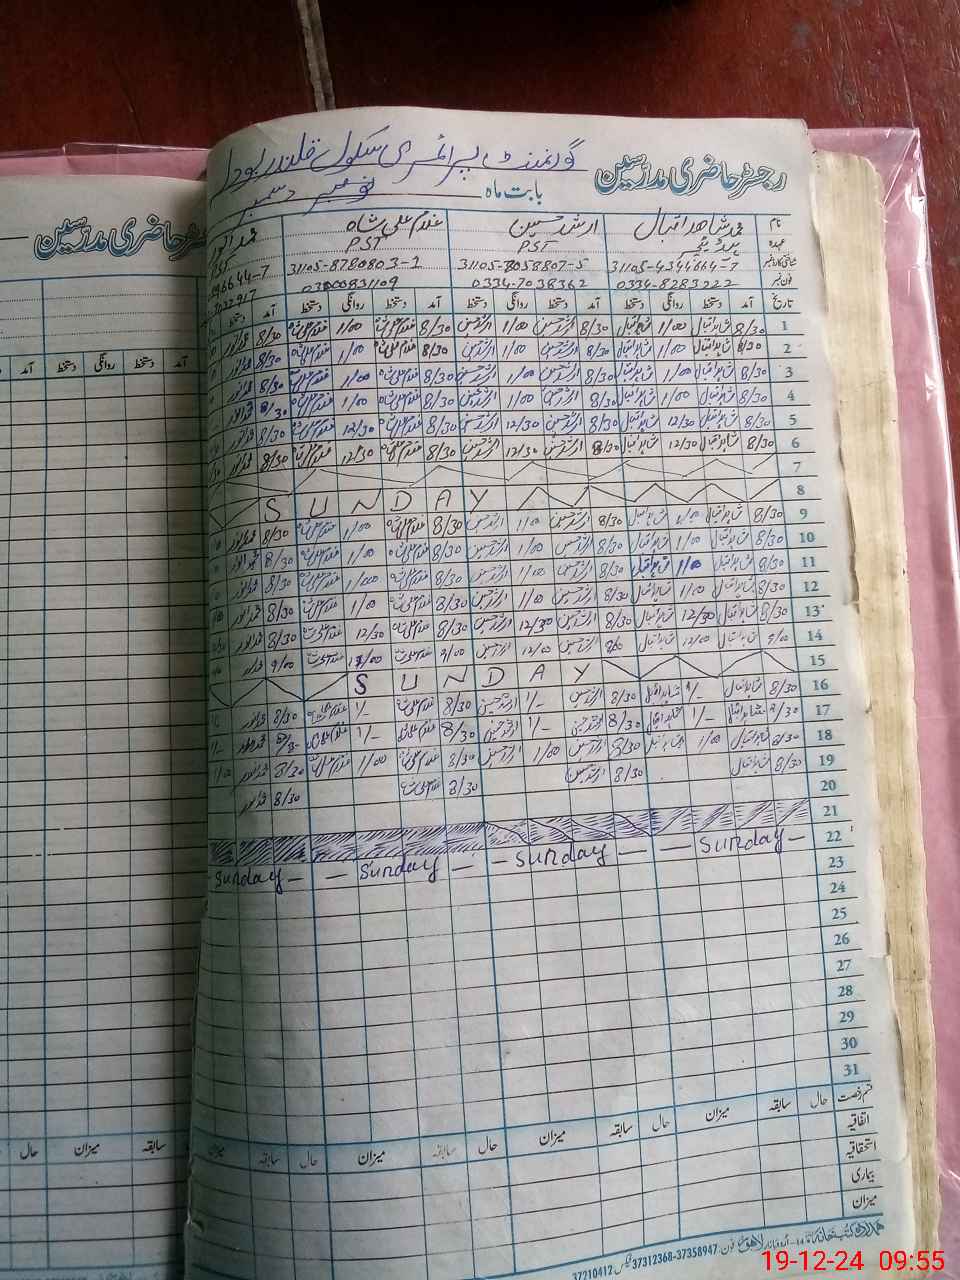 گورنمنٹ پرائمری سکول قلندر بودلہ
رجسٹر حاضری مدرسین
بابت ماہ دسمبر
رجسٹر حاضری مدرسین
نام محمد شاھد اقبال ارشد حسین غلام علی شاہ محمد انور
عہدہ PST PST PST
31105-4344664-7 31105-8058807-5 31105-8780803-1
فون نمبر 0334-8283222 0334-7038362 03000831109
تاریخ آمد دستخط روانگی دستخط آمد دستخط روانگی دستخط آمد دستخط روانگی دستخط آمد دستخط
آمد دستخط روانگی دستخط آمد
1 8/30 شاہد اقبال 1/00 شاہد اقبال 8/30 ارشد حسین 1/00 ارشد حسین 8/30 غلام علی شاہ 1/00 غلام علی شاہ 8/30 محمد انور
2 8/30 شاہد اقبال 1/00 شاہد اقبال 8/30 ارشد حسین 1/00 ارشد حسین 8/30 غلام علی شاہ 1/00 غلام علی شاہ 8/30 محمد انور
3 8/30 شاہد اقبال 1/00 شاہد اقبال 8/30 ارشد حسین 1/00 ارشد حسین 8/30 غلام علی شاہ 1/00 غلام علی شاہ 8/30 محمد انور
4 8/30 شاہد اقبال 1/00 شاہد اقبال 8/30 ارشد حسین 1/00 ارشد حسین 8/30 غلام علی شاہ 1/00 غلام علی شاہ 8/30 محمد انور
5 8/30 شاہد اقبال 12/30 شاہد اقبال 8/30 ارشد حسین 12/30 ارشد حسین 8/30 غلام علی شاہ 12/30 غلام علی شاہ 8/30 محمد انور
6 8/30 شاہد اقبال 12/30 شاہد اقبال 8/30 ارشد حسین 12/30 ارشد حسین 8/30 غلام علی شاہ 12/30 غلام علی شاہ 8/30 محمد انور
7
8 SUNDAY
9 8/30 شاہد اقبال 1/00 شاہد اقبال 8/30 ارشد حسین 1/00 ارشد حسین 8/30 غلام علی شاہ 1/00 غلام علی شاہ 8/30 محمد انور
10 8/30 شاہد اقبال 1/00 شاہد اقبال 8/30 ارشد حسین 1/00 ارشد حسین 8/30 غلام علی شاہ 1/00 غلام علی شاہ 8/30 محمد انور
11 8/30 شاہد اقبال 1/00 شاہد اقبال 8/30 ارشد حسین 1/00 ارشد حسین 8/30 غلام علی شاہ 1/00 غلام علی شاہ 8/30 محمد انور
12 8/30 شاہد اقبال 1/00 شاہد اقبال 8/30 ارشد حسین 1/00 ارشد حسین 8/30 غلام علی شاہ 1/00 غلام علی شاہ 8/30 محمد انور
13 8/30 شاہد اقبال 12/30 شاہد اقبال 8/30 ارشد حسین 12/30 ارشد حسین 8/30 غلام علی شاہ 12/30 غلام علی شاہ 8/30 محمد انور
14 9/00 شاہد اقبال 12/00 شاہد اقبال ارشد حسین 12/00 ارشد حسین 9/00 غلام علی شاہ غلام علی شاہ 9/00 محمد انور
15 SUNDAY
16 8/30 شاہد اقبال 1/- شاہد اقبال 8/30 ارشد حسین 1/- ارشد حسین 8/30 غلام علی شاہ 1/- غلام علی شاہ 8/30 محمد انور
17 8/30 شاہد اقبال 1/- شاہد اقبال 8/30 ارشد حسین 1/- ارشد حسین 8/30 غلام علی شاہ 1/- غلام علی شاہ محمد انور
18 8/30 شاہد اقبال 1/00 شاہد اقبال 8/30 ارشد حسین 1/00 ارشد حسین 8/30 غلام علی شاہ 1/00 غلام علی شاہ 8/30 محمد انور
19 8/30 شاہد اقبال 8/30 ارشد حسین 8/30 غلام علی شاہ 8/30 محمد انور
20
21
22 Sunday Sunday Sunday Sunday
23
24
25
26
27
28
29
30
31
قسم رخصت حال سابقہ میزان حال سابقہ میزان حال سابقہ میزان حال سابقہ میزان
حال میزان سابقہ
اتفاقیہ
استحقاقیہ
بیماری
میزان
فون: 37358947-37312368 فیکس 37210412
19-12-24 09:55